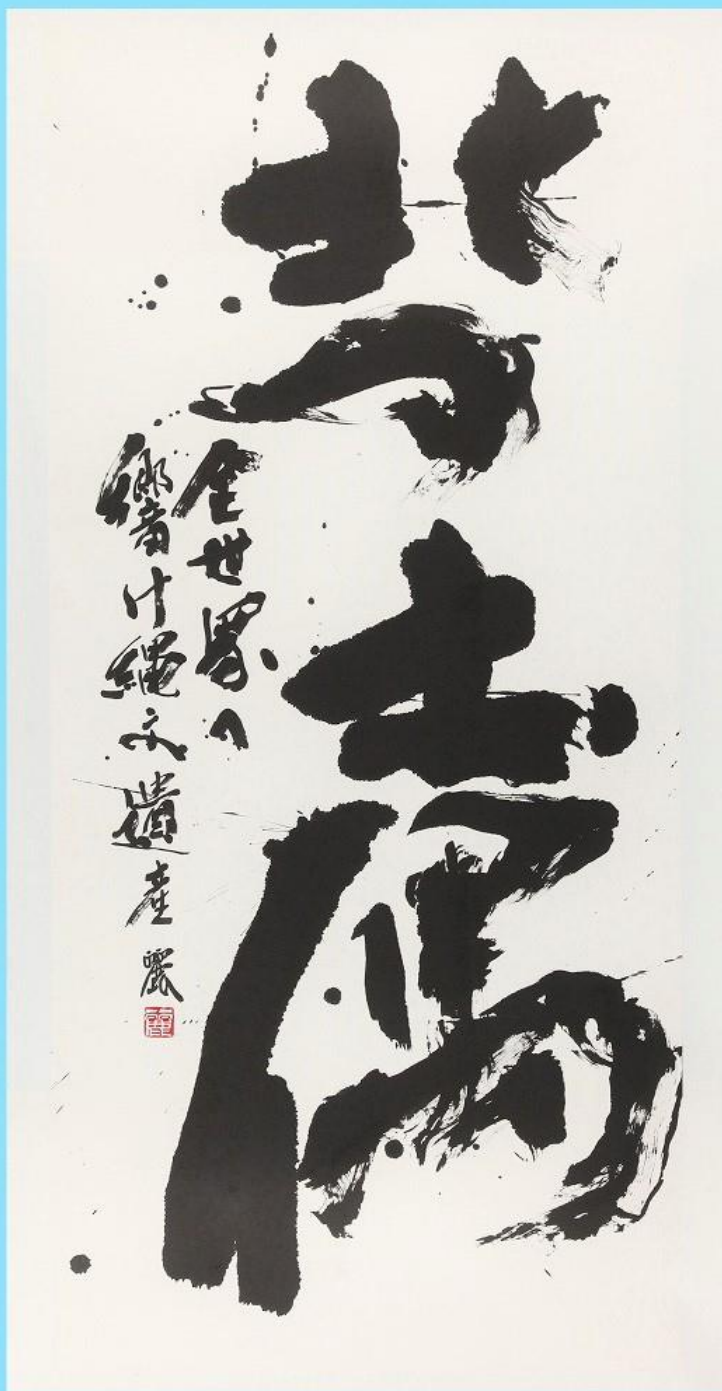 北の土偶
全世界へ
響け縄文遺産 麗